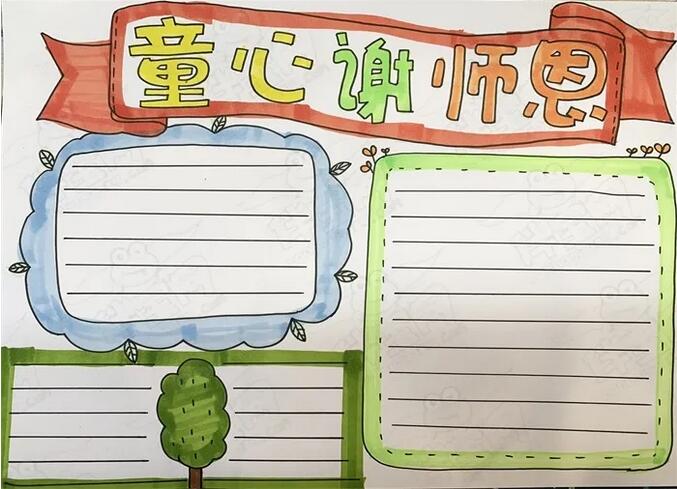 童心谢师恩